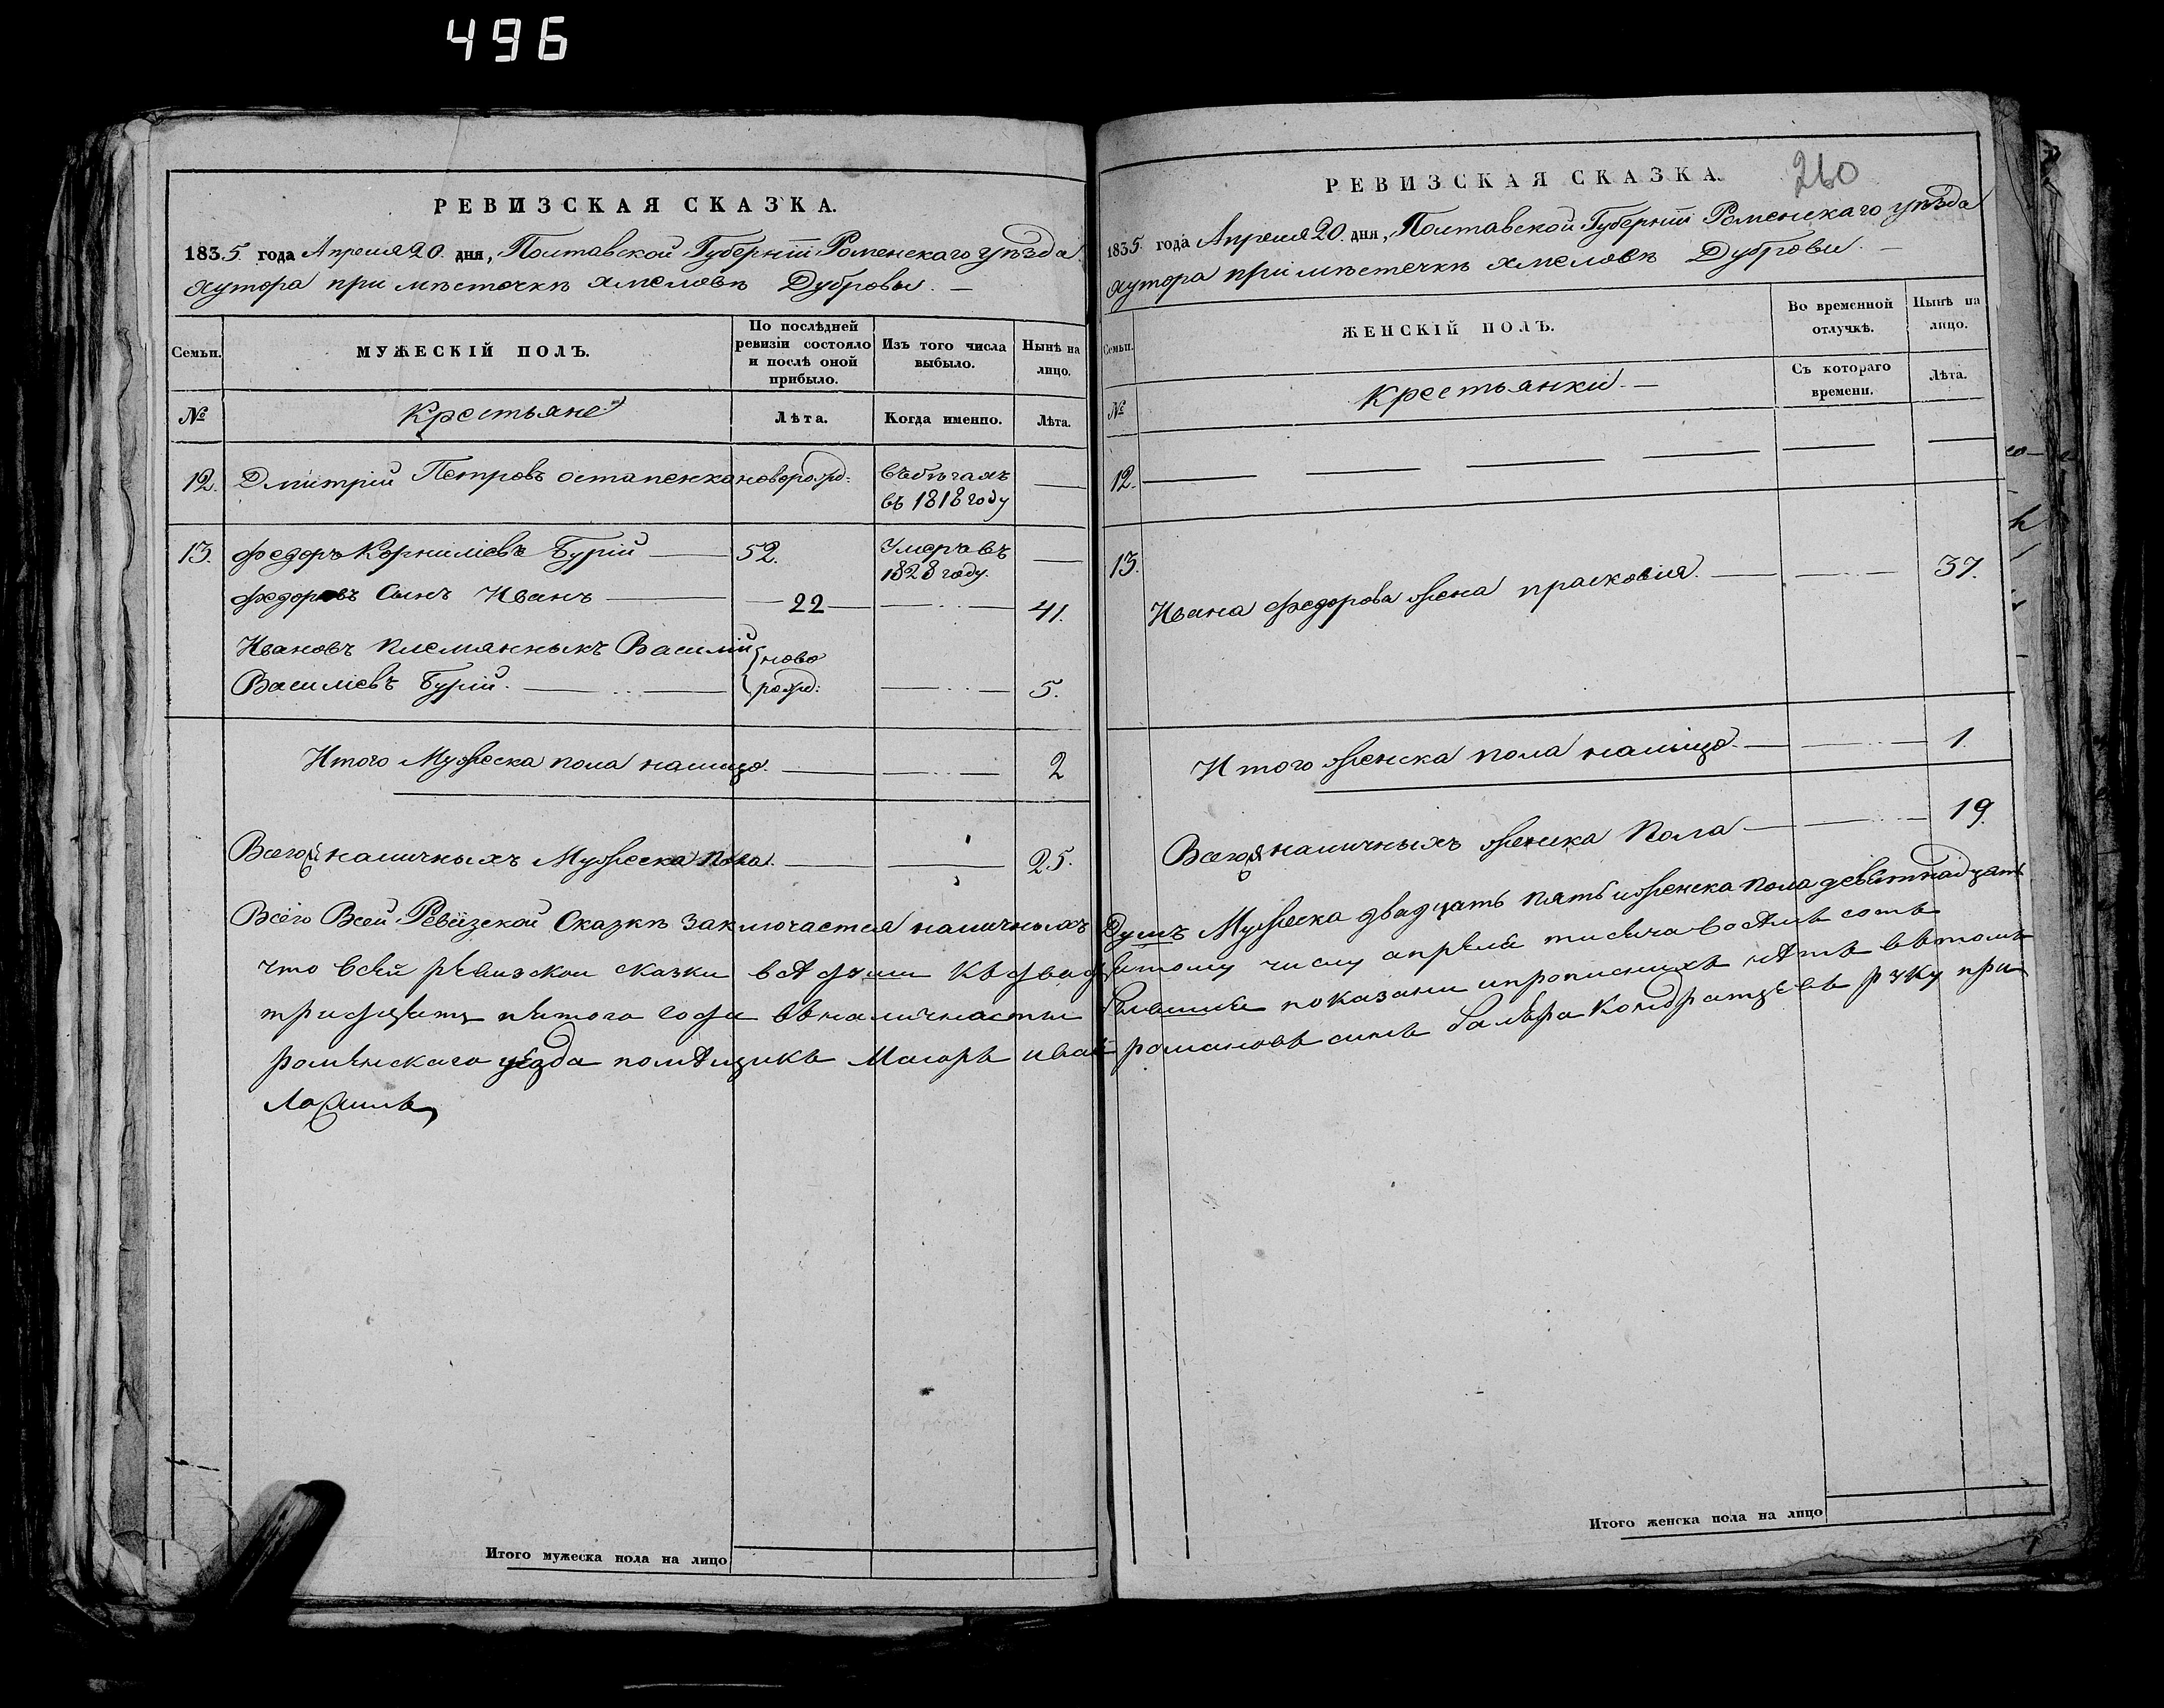 496
РЕВИЗСКАЯ СКАЗКА.
1835. года Апреля 20. дня, Полтавской Губерніи Роменскаго уѣзда
хутора при мѣсточкѣ хмеловѣ Дубровы. —
Семьи.
МУЖЕСКІЙ ПОЛЪ.
По послѣдней ревизіи состояло и послѣ оной прибыло.
Изъ того числа выбыло.
Нынѣ на лицо.
№
Крестьяне
Лѣта.
Когда именно.
Лѣта.
12. Дмитрій Петровъ остапенко новорожд: въбѣгахъ —
въ 1818 году
13. Федоръ Корниліевъ Бурій — 52. Умеръ въ —
1828 году.
Федоровъ Сынъ Иванъ — 22 — 41.
Ивановъ племянныкъ Василій ново
Василіевъ Бурій. — рожд: — 5.
Итого Мужеска пола налицо. — 2
Всего наличныхъ Мужеска пола. — 25.
Итого мужеска пола на лицо
РЕВИЗСКАЯ СКАЗКА.
260
1835. года Апреля 20. дня, Полтавской Губерніи Роменскаго уѣзда
хутора при мѣстечкѣ хмеловѣ Дубровы. —
Семьи.
ЖЕНСКІЙ ПОЛЪ.
Во временной отлучкѣ.
Нынѣ на лицо.
№
Крестьянки. —
Съ котораго времени.
Лѣта.
12. — — — — — —
13.
Ивана Федорова жена прасковія. — 37.
Итого женска пола налицо. — 1.
Всего наличныхъ женска Пола — 19.
Всего Всей Ревизской Сказкѣ заключается наличныхъ Душъ Мужеска двадцать пять и женска пола девятнадцать
что всей ревизской сказки все души къ двадцятому числу апреля тисяча восемъ сотъ
тридцять пятого года въ наличности бывшие показани ипрописних летъ въ томъ
роменскаго уезда помещикъ Маіоръ иван романовъ синъ руку при
Итого женска пола на лицо